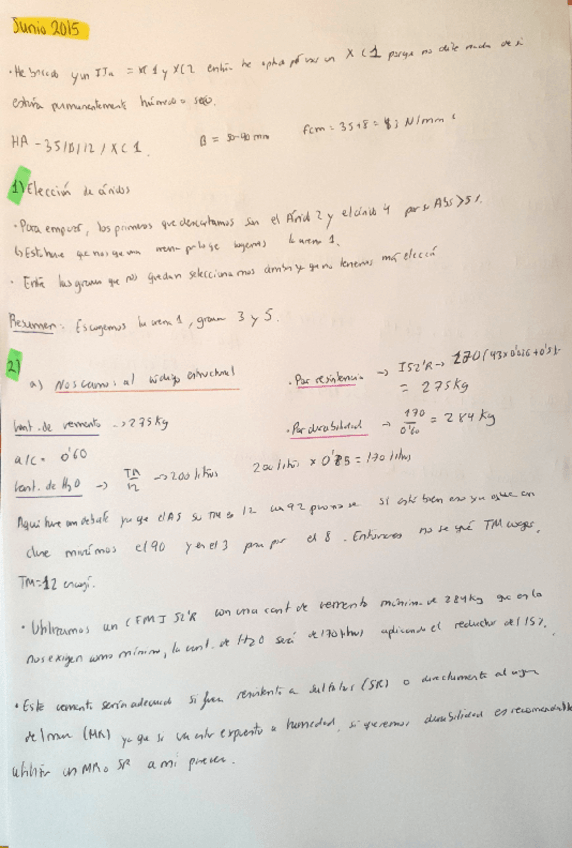 Junio 2015
· He buscado y un IIa = XC1 y XC2 entón he optado por un XC1 porque no dice nada de si
estaría permanentemente húmedo o seco.
HA - 35/B/12/XC1. B = 50-90 mm fcm = 35+8 = N/mm
1) Elección de áridos
· Para empezar, los primeros que descartamos son el Árido 2 y el árido 4 por su Abs >5%.
una arena por lo que cogemos la arena 1.
· Entre las gravas que nos quedan seleccionamos ambas ya que no tenemos más elección
Resumen: Escogemos la arena 1, grava 3 y 5.
2)
a) Nos vamos al código estructural
· Por resistencia → I52'R → 170(43x0'026+0'5)=
= 275 kg
Cant. de cemento → 275 kg
· Por durabilidad → 170/0'60 = 284 kg
a/c = 0'60
Cant. de H2O → TM 12 → 200 litros 200 litros x 0'85 = 170 litros
Aquí tuve un debate ya que el A5 su TM es 12 un 92 pero no se si está bien eso ya que en
clase miramos el 90 y en el 3 pasa por el 8. Entonces no se qué TM coger,
TM=12 escogí.
· Utilizamos un CEM I 52'R con una cant de cemento mínima de 284 kg que es la
nos exigen como mínimo, la cant. de H2O será de 170 litros aplicando el reductor del 15%.
· Este cemento sería adecuado si fuera resistente a sulfatos (SR) o directamente al agua
de mar (MR) ya que si va estar expuesto a humedad, si queremos durabilidad es recomendable
utilizar un MR o SR a mi parecer.